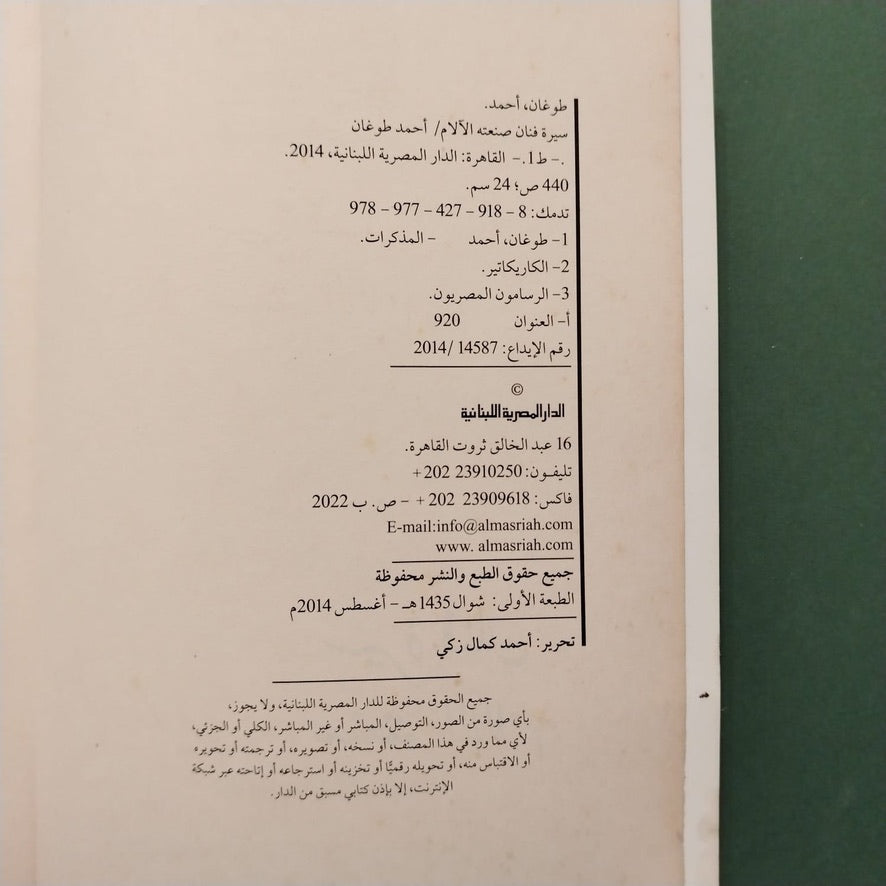 طوغان، أحمد.
سيرة فنان صنعته الآلام/ أحمد طوغان
.- ط1.- القاهرة: الدار المصرية اللبنانية، 2014.
440 ص؛ 24 سم.
تدمك: 8 - 918 - 427 - 977 - 978
1- طوغان، أحمد - المذكرات.
2- الكاريكاتير.
3- الرسامون المصريون.
أ- العنوان 920
رقم الإيداع: 14587 /2014
©
الدار المصرية اللبنانية
16 عبد الخالق ثروت القاهرة.
تليفـون: 23910250 202 +
فاكس: 23909618 202 + - ص. ب 2022
E-mail:info@almasriah.com
www. almasriah.com
جميع حقوق الطبع والنشر محفوظة
الطبعة الأولى: شوال 1435هـ - أغسطس 2014م
تحرير: أحمد كمال زكي
جميع الحقوق محفوظة للدار المصرية اللبنانية، ولا يجوز،
بأي صورة من الصور، التوصيل، المباشر أو غير المباشر، الكلي أو الجزئي،
لأي مما ورد في هذا المصنف، أو نسخه، أو تصويره، أو ترجمته أو تحويره
أو الاقتباس منه، أو تحويله رقميًّا أو تخزينه أو استرجاعه أو إتاحته عبر شبكة
الإنترنت، إلا بإذن كتابي مسبق من الدار.